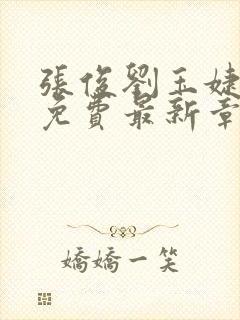 張俊劉玉婕
免費最新章
嬌嬌一笑